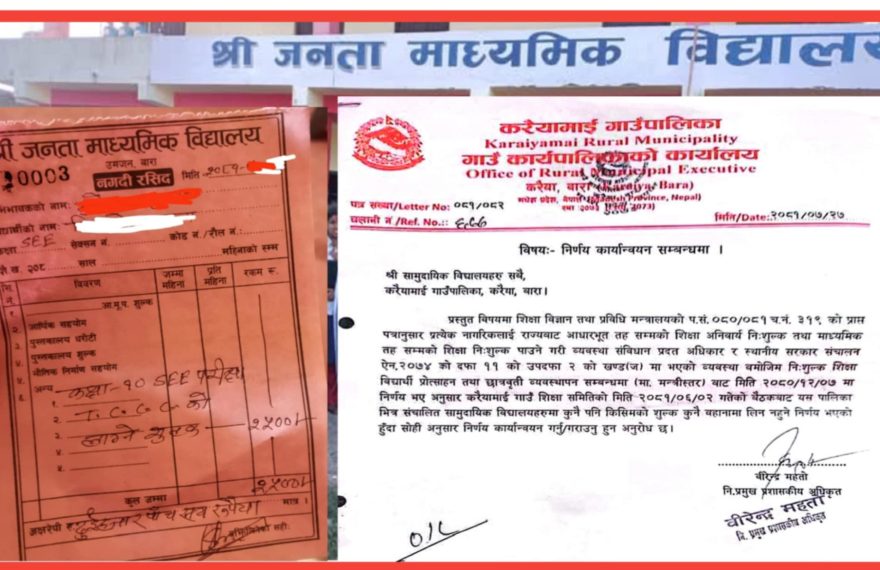 श्री जनता माध्यमिक विद्यालय
श्री जनता माध्यमिक विद्यालय
उमजन, बारा
0003
नगदी रसिद
मिति २०८१
अभिभावकको नाम:
विद्यार्थीको नाम:
कक्षा SEE सेक्सन नं. कोड नं./रौल नं.:
सम्म २०८ साल महिनाको सम्म
सि.नं. विवरण जम्मा महिना प्रति महिना रकम रू.
१ आ.मू.प. शुल्क
२ आर्थिक सहयोग
३ पुस्तकालय धरौटी
४ पुस्तकालय शुल्क
५ भौतिक निर्माण सहयोग
६ अन्य
१ कक्षा-१० SEE परीक्षा
२ T.C. C.C. को
३ लाग्ने शुल्क २५००/-
४
५
कुल जम्मा २५००/-
अक्षरेपी रू. दुई हजार पाँच सय रूपैया मात्र ।
बुझिलिनेको सही:
करैयामाई गाउँपालिका
Karaiyamai Rural Municipality
गाउँ कार्यपालिकाको कार्यालय
Office of Rural Municipal Executive
करैया, बारा (Karaiya, Bara)
मधेश प्रदेश, नेपाल (Madhesh Province, Nepal)
पत्र सख्या/Letter No: ०८१/०८२
चलानी नं/Ref. No.:
मिति/Date: २०८१/०७/२७
विषयः- निर्णय कार्यान्वयन सम्बन्धमा ।
श्री सामुदायिक विद्यालयहरु सबै,
करैयामाई गाउँपालिका, करैया, बारा।
प्रस्तुत विषयमा शिक्षा विज्ञान तथा प्रविधि मन्त्रालयको प.सं. ०८०/०८१ च.नं. ३१९ को प्राप्त
पत्रानुसार प्रत्येक नागरिकलाई राज्यबाट आधारभूत तह सम्मको शिक्षा अनिवार्य निःशुल्क तथा माध्यमिक
तह सम्मको शिक्षा निःशुल्क पाउने गरी व्यवस्था संविधान प्रदत अधिकार र स्थानीय सरकार संचालन
ऐन.२०७४ को दफा ११ को उपदफा २ को खण्ड(ज) मा भएको व्यवस्था बमोजिम निःशुल्क शिक्षा
विद्यार्थी प्रोत्साहन तथा छात्रवृती व्यवस्थापन सम्बन्धमा (मा. मन्त्रीस्तर) बाट मिति २०८०/१२/०७ मा
निर्णय भए अनुसार करैयामाई गाउँ शिक्षा समितिको मिति २०८१/०६/०२ गतेको बैठकबाट यस पालिका
भित्र संचालित सामुदायिक विद्यालयहरुमा कुनै पनि किसिमको शुल्क कुनै बहानामा लिन नहुने निर्णय भएको
हुँदा सोही अनुसार निर्णय कार्यान्वयन गर्नु/गराउनु हुन अनुरोध छ।
वीरेन्द्र महतो
नि.प्रमुख प्रशासकीय अधिकृत
वीरेन्द्र महतो
नि. प्रमुख प्रशासकीय अधिकृत